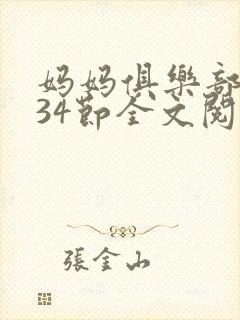 妈妈俱樂部
34節全文閱
張金山